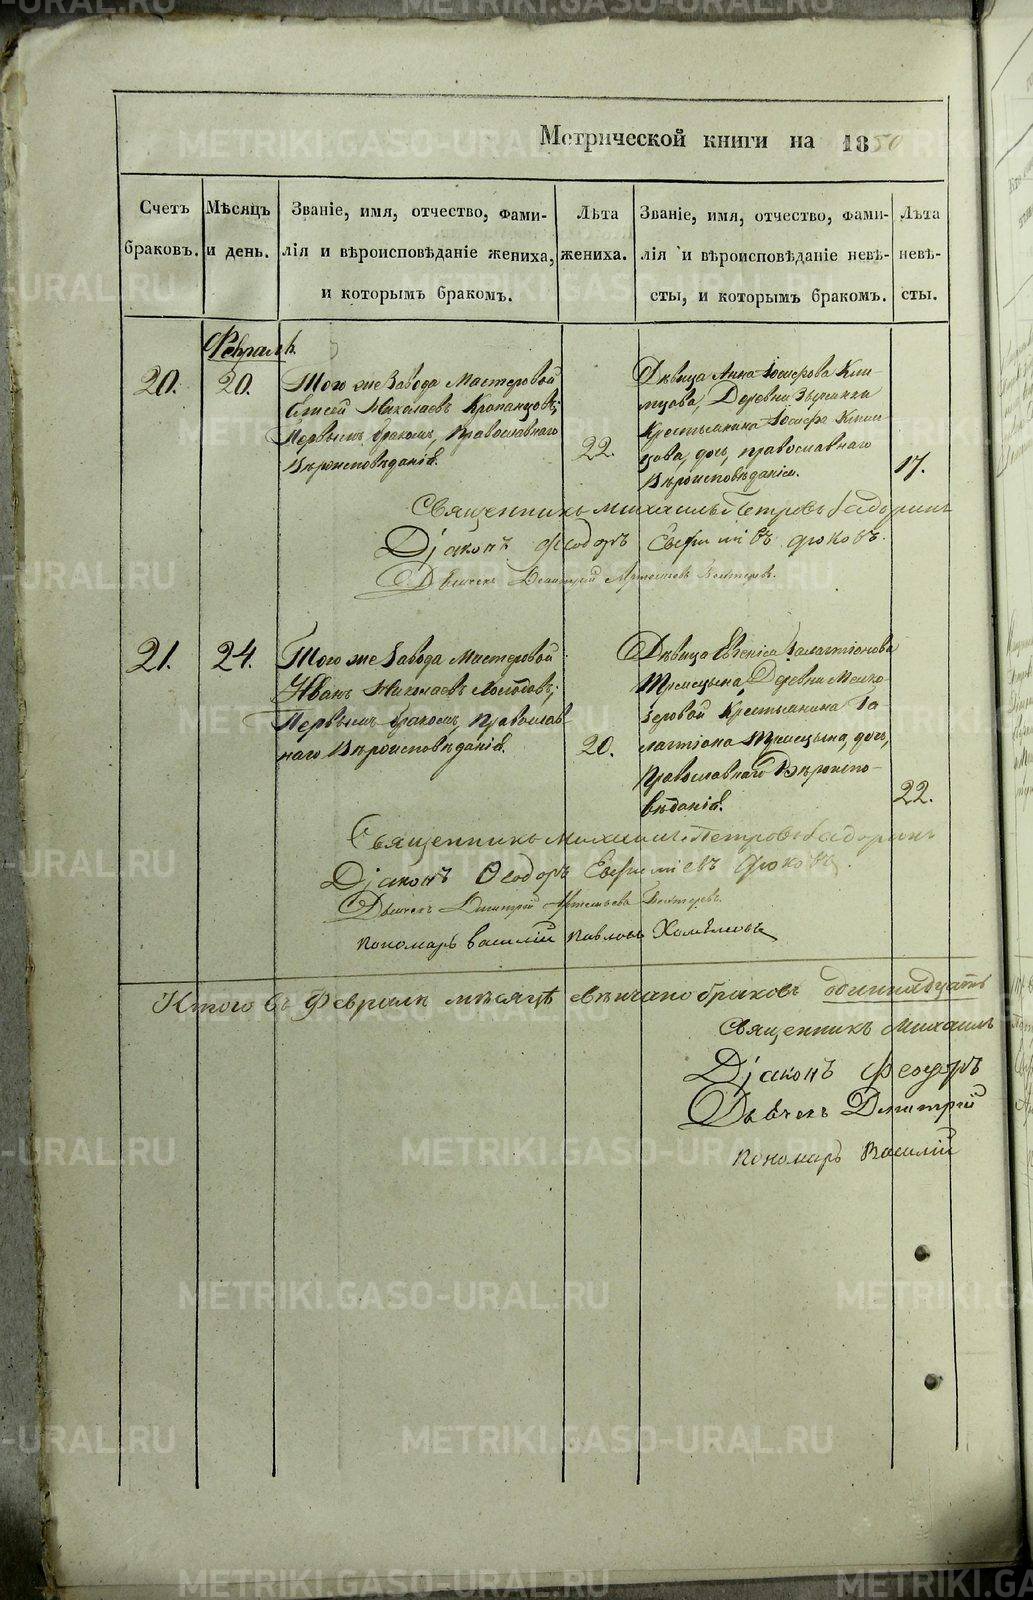 Метрической книги на 1850
Счетъ браковъ.
Мѣсяцъ и день.
Званіе, имя, отчество, фами-
лія и вѣроисповѣданіе жениха,
и которымъ бракомъ.
Лѣта жениха.
Званіе, имя, отчество, фами-
лія и вѣроисповѣданіе невѣ-
сты, и которымъ бракомъ.
Лѣта невѣ-
сты.
Февраль.
20.
20.
Того же Завода Мастеровой
Елисей Николаевъ
Первымъ бракомъ, Православнаго
Вѣроисповѣданія.
22.
Дѣвица Анна Іосифова Клю-
Деревни
Крестьянина Іосифа
дочь, православнаго
Вѣроисповѣданія.
17.
Священникъ Михаилъ Петровъ
Діаконъ Ѳеодоръ Евѳиміевъ Фоковъ.
Дьячекъ Димитрій
21.
24.
Того же Завода Мастеровой
Иванъ Николаевъ
Первымъ бракомъ, Православ
наго Вѣроисповѣданія.
20.
Дѣвица Евгенія Галактіонова
Деревни
Крестьянина Га
лактіона дочь,
Православнаго Вѣроиспо-
вѣданія.
22.
Священникъ Михаилъ Петровъ
Діаконъ Ѳеодоръ Евѳиміевъ Фоковъ.
Дьячекъ Димитрій
Пономарь Василій Павловъ
Итого въ Февралѣ мѣсяцѣ вѣнчано браковъ одиннадцать
Священникъ Михаилъ
Діаконъ Феодоръ
Дьячекъ Димитрій
Пономарь Василій
METRIKI.GASO-URAL.RU